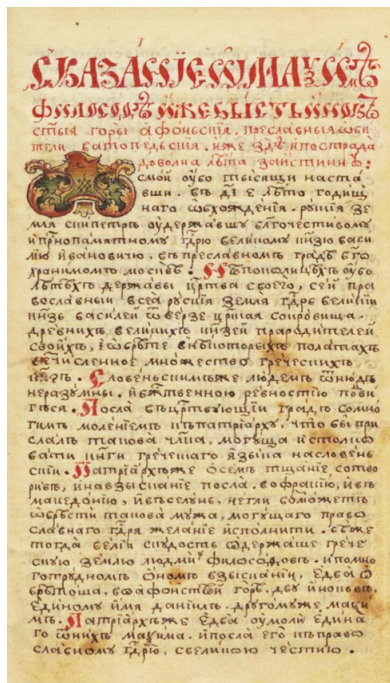 СКАЗАНЇЕ Ѿ МАѮИМѢ
ФИЛОСОФѢ ИЖЕ БЫСТЬ ИНОКЪ
ст҃ыя горы афоньскїа. преславныя ѡби
тели ватопедьскїа. иже здѣ ипострада
доволна лѣта заистиннꙋ:
смой ꙋбо тысящи наста
вши. въ лѣто годищ
наго ѡбхожденїя. рꙋскїя зе
мля скипетръ ꙋдержавшꙋ бл҃гочестивомꙋ
иприснопамятномꙋ гдрю великомꙋ кн҃зю васи
лїю ївановичю. въпреславномъ градѣ бг҃о
хранимомъ москвѣ.
лѣтехъ державы црт҃ва своего, сей пра
вославный всеа рꙋсїия земля гдрь великїи
кн҃зь василей ѿверзе црския сокровища.
древнихъ великихъ кн҃зей прародителей
своихъ, иѡбрѣте внѣкоторыхъ полатахъ
безчисленное множество греческихъ
книгъ. Словеньскимъже людемъ ѿнюдъ
неразꙋмны. ибж҃твенною ревностїю подви
гъся. Посла въцрт҃вꙋющїи градъ, сомно
гимъ моленїемъ къпатрїархꙋ, чтобы при
слалъ такова чл҃ка, могꙋща истолко
вати книги греческаго языка насловень
скїи. Патрїархъже ѡсемъ тщание сотво
ривъ, инавзыскание посла. вофракїю, ивъ
македонїю, ивъселꙋнь. негли возможетъ
ѡбрѣсти такова мꙋжа, могꙋщаго право
славнаго гдря желанїе исполнити. бѣже
тогда велїя скꙋдость ѿдержаше грече
скꙋю землю людми философовъ. ипомно
готрꙋдномъ ѡномъ взысканїи, едва ѡ
брѣтоша, воафонстѣй горѣ, двꙋ иноковъ,
единомꙋ имя данїилъ. дрꙋгомꙋже макси
мъ. Патрїархъже едва ꙋмоли едина
го ѿнихъ маѯима. ипосла его къправо
славномꙋ гдрю, свеликою честїю.